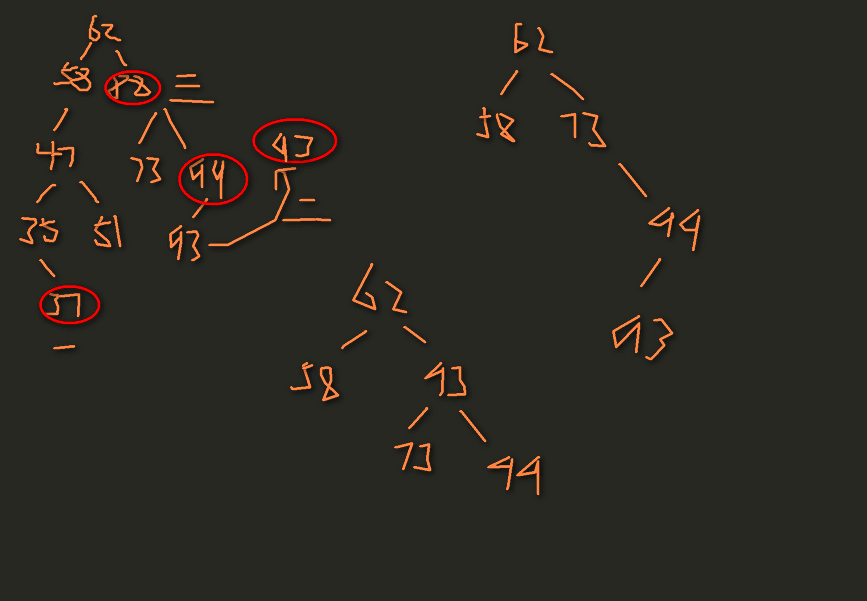 62
58 88 三
47 73 99 93
35 51 93 二
37
一
62
58 73
99
93
62
58 93
73 99